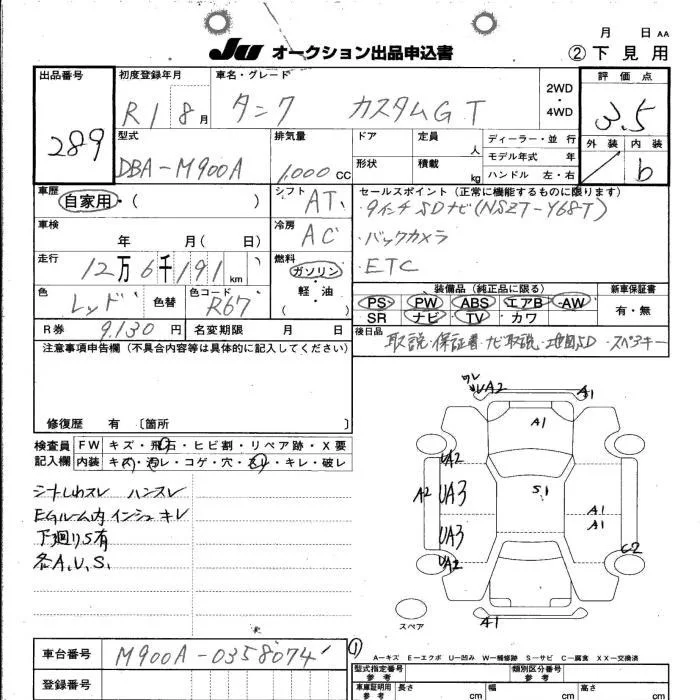 月 日 AA
JU オークション出品申込書 ②下見用
出品番号 289
初度登録年月 R1 8月
車名・グレード タンク カスタムG.T
2WD・4WD
評価点 3.5
外装 内装 b
型式 DBA-M900A
排気量 1,000 CC
ドア 定員 人
形状 積載 kg
ディーラー・並行
モデル年式 年
ハンドル 左・右
車歴 自家用・( )
シフト AT
セールスポイント(正常に機能するものに限ります)
・9インチSDナビ(NSZT-Y68T)
・バックカメラ
・ETC
車検 年 月( 日)
冷房 AC
走行 12万6千191km
燃料 ガソリン・軽・油 ( )
色 レッド 色替 色コード R67
装備品(純正品に限る)
PS PW ABS エアB AW
SR ナビ TV カワ
新車保証書 有・無
R券 9,130円 名変期限 月 日
後日品 取説・保証書・ナビ取説・地図SD・スペアキー
注意事項申告欄(不具合内容等は具体的に記入してください)
修復歴 有 〔箇所 〕
検査員記入欄
FW キズ・飛石・ヒビ割・リペア跡・X要
内装 キズ・汚レ・コゲ・穴・スリ・キレ・破レ
シートしわスレ ハンスレ
EGルーム内インシュキレ
下廻りS有
各A.U.S.
ワレ
UA2 A1
A1
UA2
A2 UA3 S1 A1
A1
UA3 C2
UA2
A1
スペア
車台番号 M900A-0358074
①
A−キズ E−エクボ U−凹み W−補修跡 S−サビ C−腐食 XX−交換済
登録番号
型式指定番号 参考
類別区分番号 参考
車庫証明用 参考 長さ cm 幅 cm 高さ cm